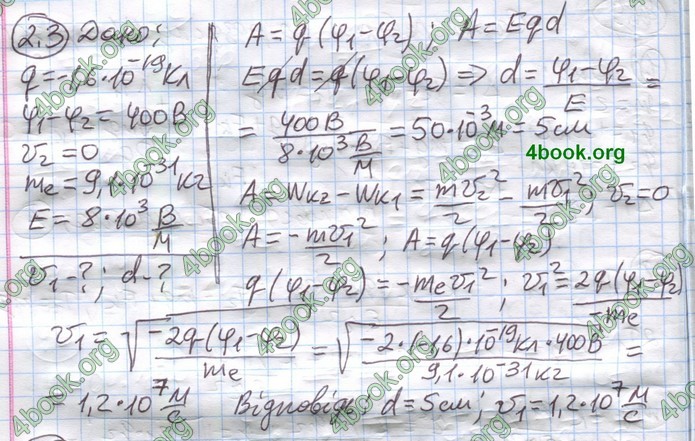 2.3 Дано:
q = -1,6·10⁻¹⁹ Кл
φ₁ - φ₂ = 400 В
v₂ = 0
mₑ = 9,1·10⁻³¹ кг
E = 8·10³ В/м
v₁ - ?; d - ?
A = q(φ₁ - φ₂); A = Eqd
Eqd = q(φ₁ - φ₂) => d = (φ₁ - φ₂)/E =
= 400 В/(8·10³ В/м) = 50·10⁻³ м = 5 см
4book.org
A = Wк₂ - Wк₁ = mv₂²/2 - mv₁²/2; v₂ = 0
A = -mv₁²/2; A = q(φ₁ - φ₂)
q(φ₁ - φ₂) = -mₑv₁²/2; v₁² = 2q(φ₁ - φ₂)/-mₑ
v₁ = √(-2q(φ₁ - φ₂)/mₑ) = √(-2·(-1,6)·10⁻¹⁹ Кл·400 В/9,1·10⁻³¹ кг) =
= 1,2·10⁷ м/с Відповідь: d = 5 см; v₁ = 1,2·10⁷ м/с